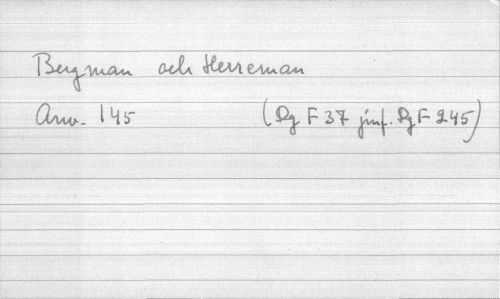 Bergman och Herreman
Arw. 145 (Dg F 37 jmf. Dg F 245)